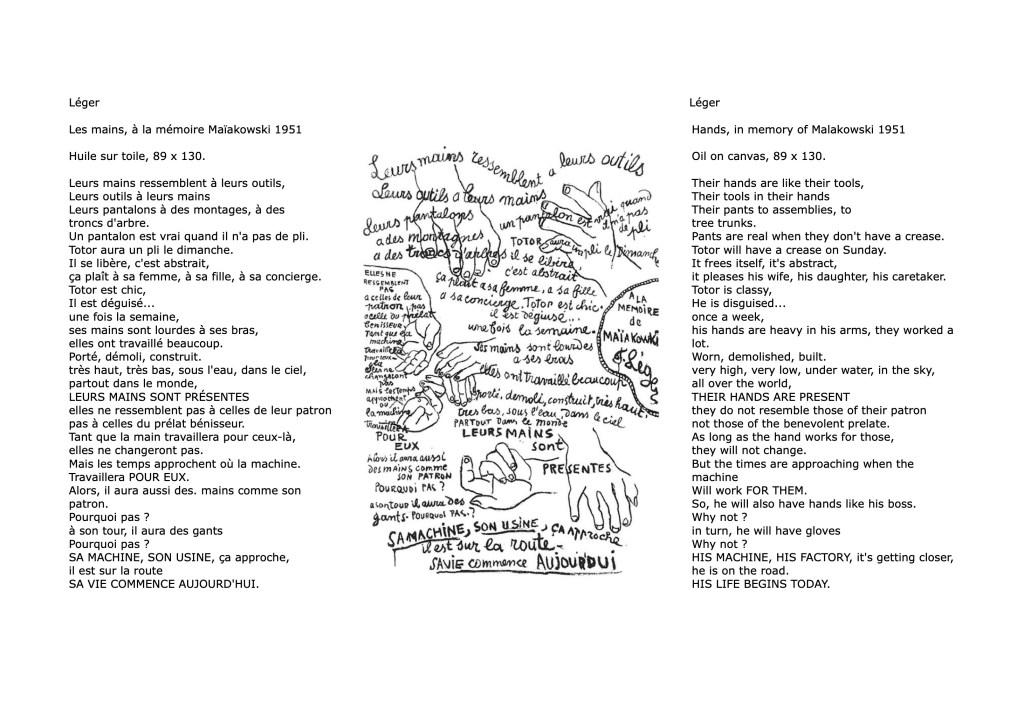 Léger
Les mains, à la mémoire Maïakowski 1951
Huile sur toile, 89 x 130.
Leurs mains ressemblent à leurs outils,
Leurs outils à leurs mains
Leurs pantalons à des montages, à des
troncs d'arbre.
Un pantalon est vrai quand il n'a pas de pli.
Totor aura un pli le dimanche.
Il se libère, c'est abstrait,
ça plaît à sa femme, à sa fille, à sa concierge.
Totor est chic,
Il est déguisé...
une fois la semaine,
ses mains sont lourdes à ses bras,
elles ont travaillé beaucoup.
Porté, démoli, construit.
très haut, très bas, sous l'eau, dans le ciel,
partout dans le monde,
LEURS MAINS SONT PRÉSENTES
elles ne ressemblent pas à celles de leur patron
pas à celles du prélat bénisseur.
Tant que la main travaillera pour ceux-là,
elles ne changeront pas.
Mais les temps approchent où la machine.
Travaillera POUR EUX.
Alors, il aura aussi des. mains comme son
patron.
Pourquoi pas ?
à son tour, il aura des gants
Pourquoi pas ?
SA MACHINE, SON USINE, ça approche,
il est sur la route
SA VIE COMMENCE AUJOURD'HUI.
Leurs mains ressemblent a leurs outils
Leurs outils a leurs mains
leurs pantalons
un pantalon est vrai quand
il n'a pas
de pli
a des montagnes
a des troncs d'arbres
TOTOR aura un pli le Dimanche
il se libère
c'est abstrait
ça plait a sa femme, a sa fille
a sa concierge. Totor est chic.
il est déguisé...
une fois la semaine.
ses mains sont lourdes
a ses bras
elles ont travaillé beaucoup.
porté, demoli, construit, très haut,
tres bas, sous l'eau, dans le ciel
PARTOUT DANS le monde
LEURS MAINS
sont
PRESENTES
A LA
MEMOIRE
de
MAÏAKOWKI
F. Léger
ELLES NE
RESSEMBLENT
PAS
a celles de leur
patron pas
a celle du prélat
benisseur.
Tant que la
machine
pas
MAIS les temps
approchent
OU
la machine
travaillera
POUR
EUX
Alors il aura aussi
DES MAINS COMME
SON PATRON
POURQUOI PAS ?
a son tour il aura des
gants. POURQUOI PAS ?
SA MACHINE, SON USINE, ÇA APPROCHE
il est sur la route -
SA VIE commence AUJOURDUI
Léger
Hands, in memory of Malakowski 1951
Oil on canvas, 89 x 130.
Their hands are like their tools,
Their tools in their hands
Their pants to assemblies, to
tree trunks.
Pants are real when they don't have a crease.
Totor will have a crease on Sunday.
It frees itself, it's abstract,
it pleases his wife, his daughter, his caretaker.
Totor is classy,
He is disguised...
once a week,
his hands are heavy in his arms, they worked a
lot.
Worn, demolished, built.
very high, very low, under water, in the sky,
all over the world,
THEIR HANDS ARE PRESENT
they do not resemble those of their patron
not those of the benevolent prelate.
As long as the hand works for those,
they will not change.
But the times are approaching when the
machine
Will work FOR THEM.
So, he will also have hands like his boss.
Why not ?
in turn, he will have gloves
Why not ?
HIS MACHINE, HIS FACTORY, it's getting closer,
he is on the road.
HIS LIFE BEGINS TODAY.